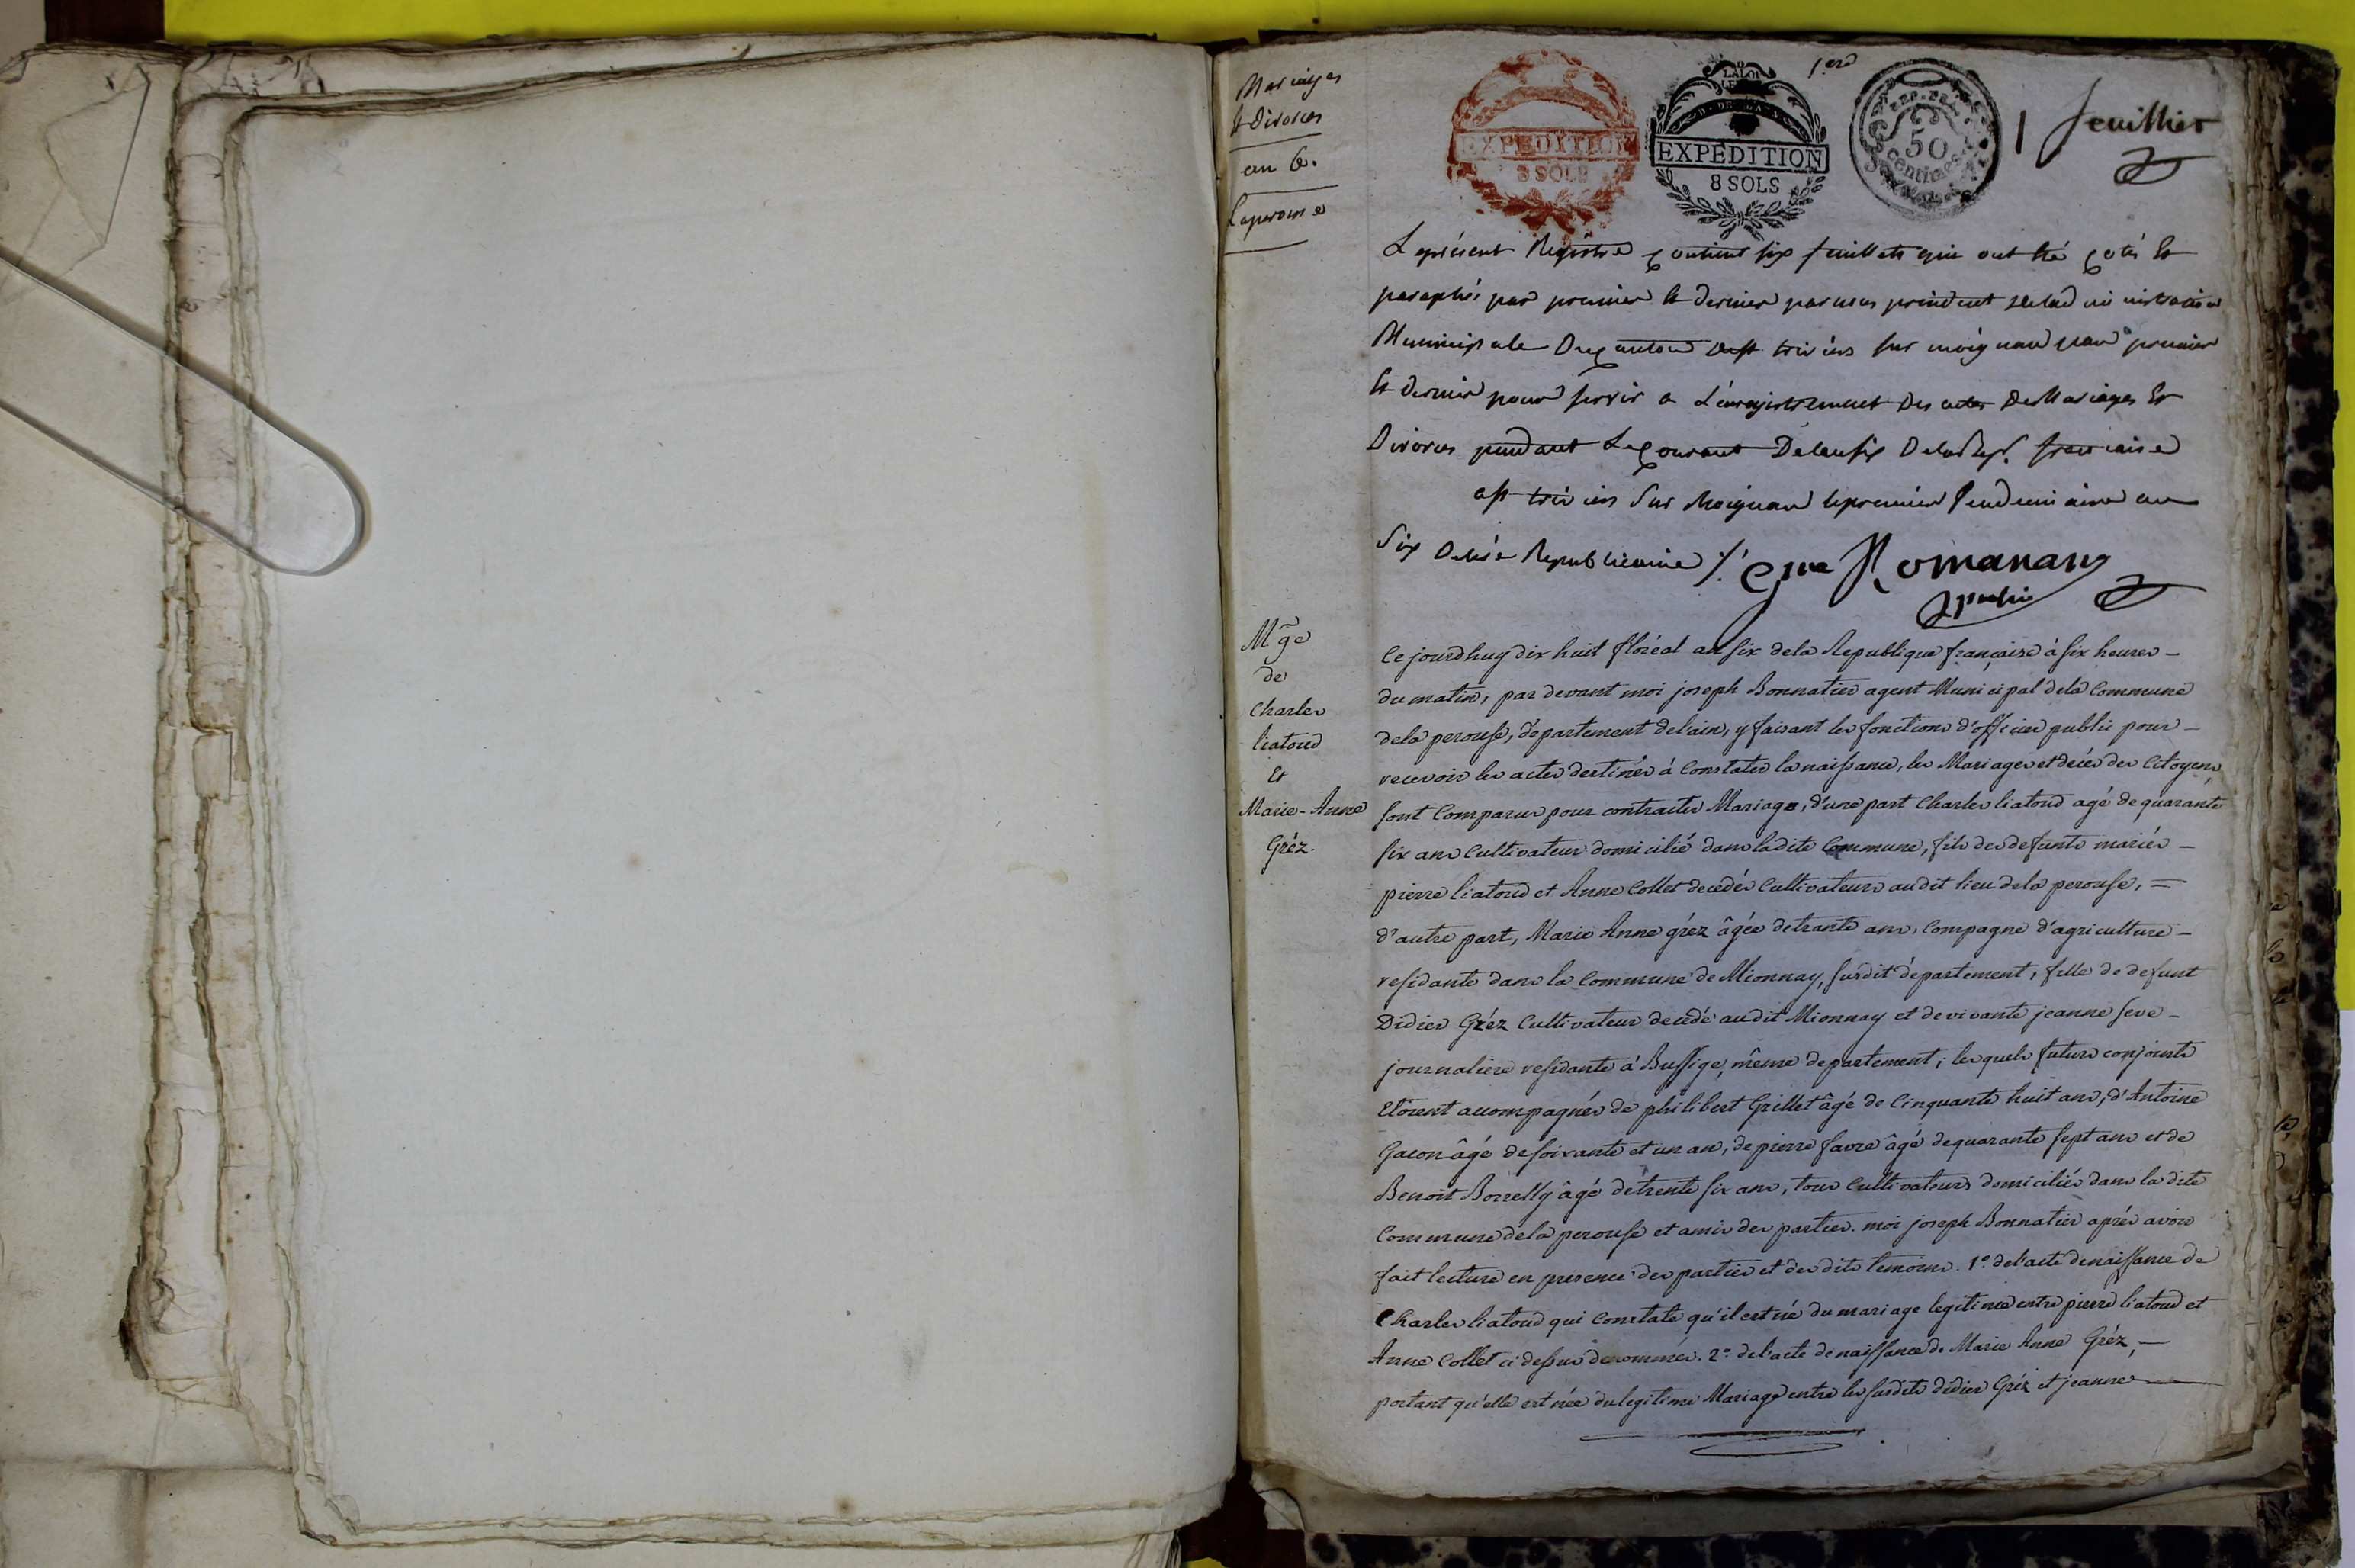 Mariages
& Divorces
an 6.
Laperouse
1er
EXPEDITION
8 SOLS
LA LOI
EXPEDITION
8 SOLS
REP. FRA.
50
centimes
1 feuillet
Le présent Registre contient six feuillets qui ont été cotés et
paraphés par premier et dernier par nous president de lad ministration
Municipale du canton de st trivies sur moignan par premier
et dernier pour servir a L'enregistrement des actes de Mariages et
Divorces pendant Le courant De lan six De la Rep. francaise
a st trivies sur Moignan le premier Vendemiaire an
Six De l'ére Republicaine
Romanans
Mge
de
Charles
liatoud
Et
Marie-Anne
Gréz.
Ce jourdhuy dix huit floréal an six de la Republique française à six heures
du matin, par devant moi joseph Bonnatier agent Municipal de la Commune
de la perouse, département de lain, y faisant les fonctions d'officier public pour
recevoir les actes destinés à Constater la naissance, les Mariages et décés des Citoyens
sont Comparus pour contracter Mariage, d'une part Charles liatoud agé de quarante
six ans Cultivateur domicilié dans ladite Commune, fils des defunts mariés
pierre liatoud et Anne Collet decedés Cultivateurs audit lieu de la perouse,
d'autre part, Marie Anne gréz âgée de trante ans, Compagne d'agriculture
residante dans la Commune de Mionnay, susdit département, fille de defunt
Didier Gréz Cultivateur decedé audit Mionnay et de vivante jeanne seve
journaliere residante à Bussige, même departement; lesquels futurs conjoints
Etoient accompagnés de philibert Grillet âgé de Cinquante huit ans, d'Antoine
Gacon âgé de soixante et un an, de pierre favre âgé de quarante sept ans et de
Benoit Borrelly âgé de trente six ans, tous Cultivateurs domiciliés dans la dite
Commune de la perouse et amis des parties. moi joseph Bonnatier aprés avoir
fait lecture en presence des parties et des dits temoins. 1º de l'acte de naissance de
Charles liatoud qui Constate qu'il est né du mariage legitime entre pierre liatoud et
Anne Collet ci dessus denommés. 2º de l'acte de naissance de Marie Anne Gréz,
portant qu'elle est née du legitime Mariage entre les susdits didier Gréz et jeanne